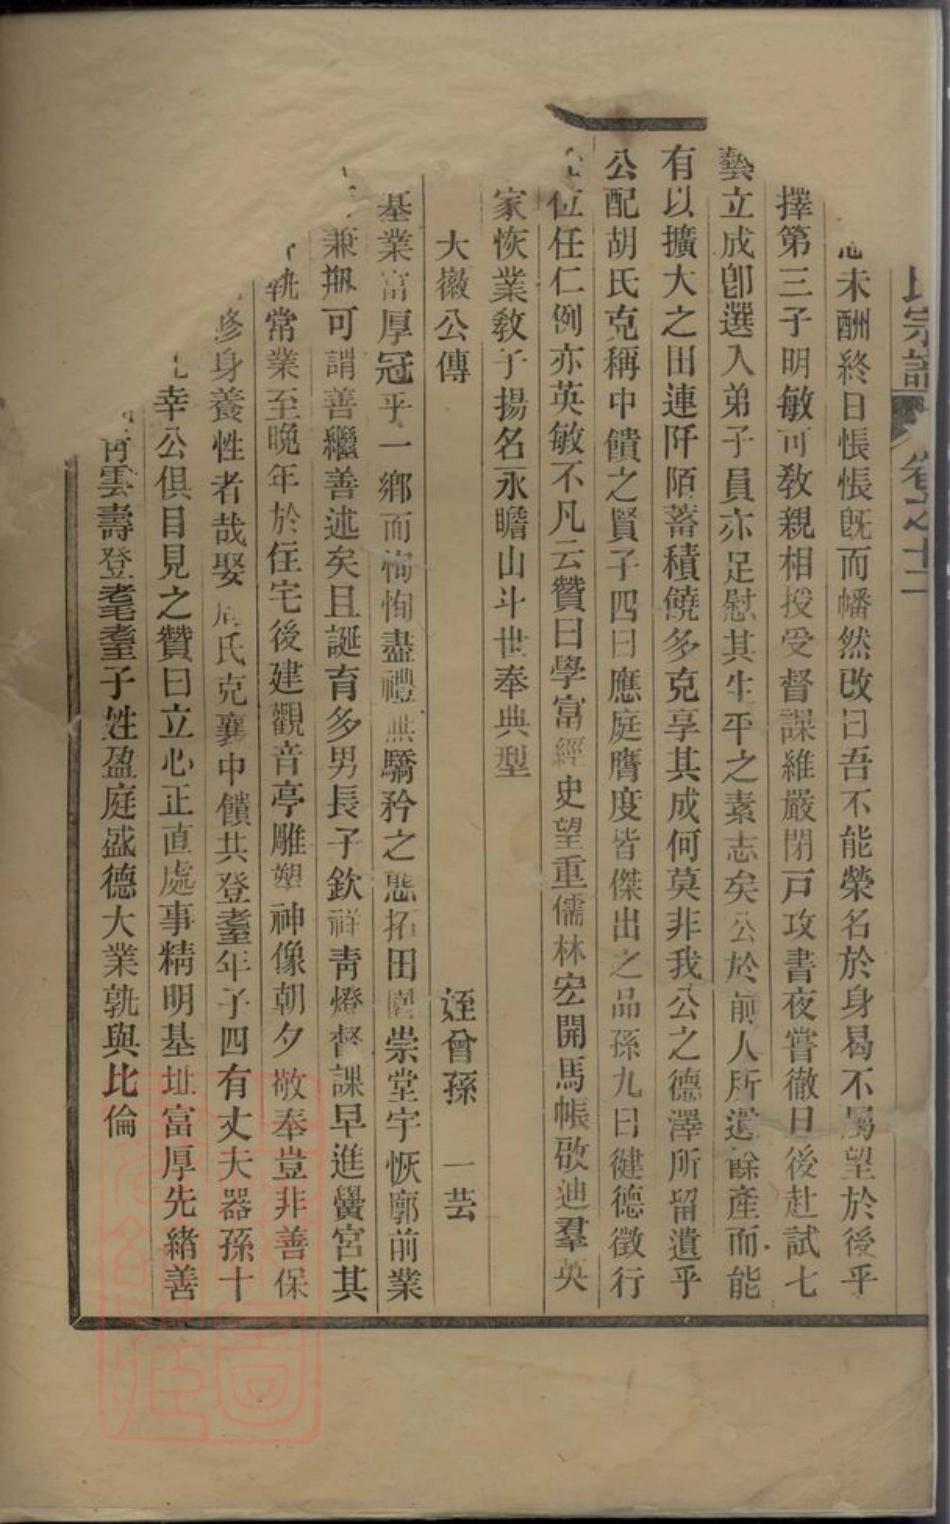 氏宗譜 卷之十二
未酬終日悵悵旣而幡然改曰吾不能榮名於身曷不屬望於後乎
擇第三子明敏可敎親相授受督課維嚴閉戸攻書夜嘗徹日後赴試七
藝立成卽選入弟子員亦足慰其生平之素志矣公於前人所遺餘產而能
有以擴大之田連阡陌蓄積饒多克享其成何莫非我公之德澤所留遺乎
公配胡氏克稱中饋之賢子四曰應庭膺度皆傑出之品孫九曰健德徵行
位任仁例亦英敏不凡云贊曰學富經史望重儒林宏開馬帳啟迪羣英
家恢業敎子揚名永瞻山斗世奉典型
大徽公傳
姪曾孫 一芸
基業富厚冠乎一鄉而恂恂盡禮無驕矜之態拓田園崇堂宇恢廓前業
兼掤可謂善繼善述矣且誕育多男長子欽祥靑燈督課早進黌宮其
執常業至晚年於住宅後建觀音亭雕塑神像朝夕敬奉豈非善保
修身養性者哉娶周氏克襄中饋共登耋年子四有丈夫器孫十
幸公俱目見之贊曰立心正直處事精明基址富厚先緒善
靑雲壽登耄耋子姓盈庭盛德大業孰與比倫